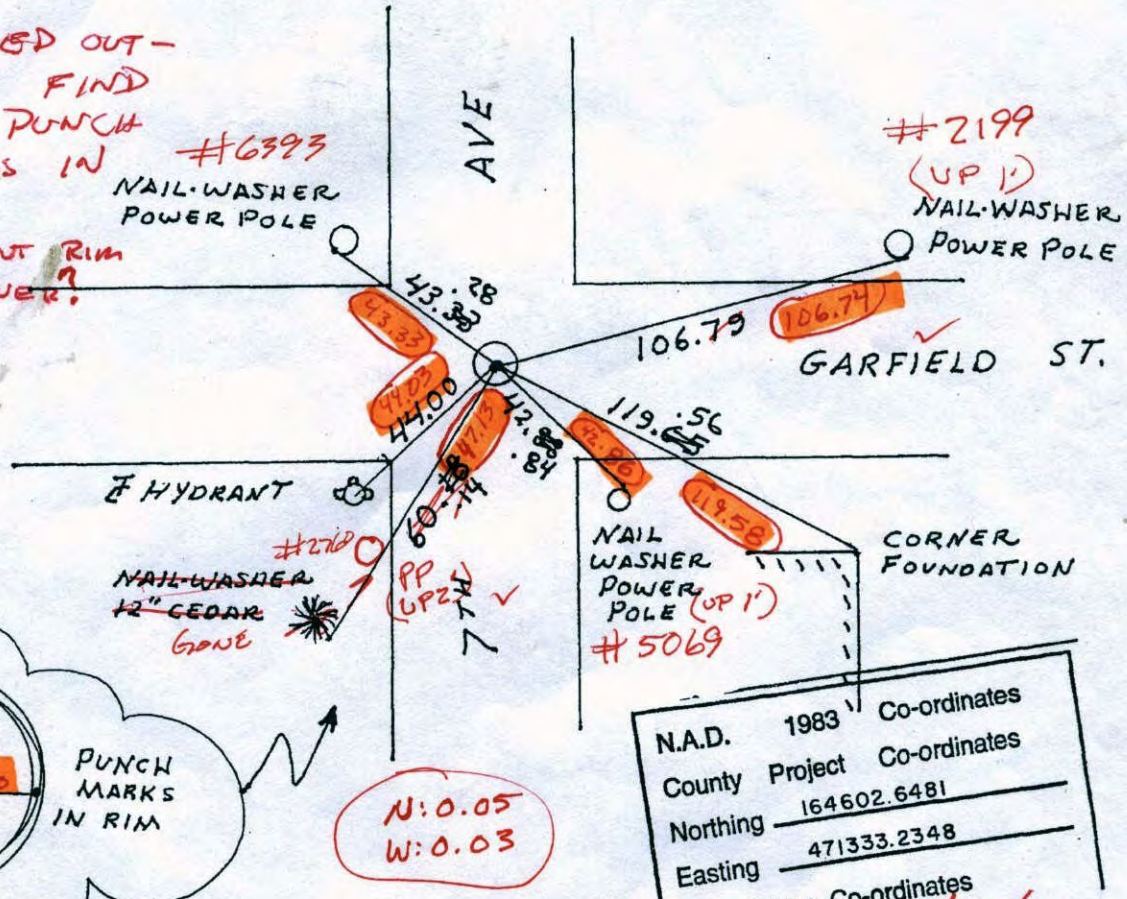 OUT –
FIND
PUNCH
IN
RIM
#6393
NAIL-WASHER
POWER POLE
AVE
#2199
(UP 1')
NAIL-WASHER
POWER POLE
.28
43.33
43.33
106.79
106.74
GARFIELD ST.
44.03
44.00
47.13
42.88
.84
42.86
119.65
.56
119.58
HYDRANT
60.
.14
#2760
NAIL-WASHER
12" CEDAR
GONE
PP
(UP 2')
7TH
NAIL
WASHER
POWER
POLE (UP 1')
#5069
CORNER
FOUNDATION
PUNCH
MARKS
IN RIM
N: 0.05
W: 0.03
N.A.D. 1983 Co-ordinates
County Project Co-ordinates
Northing 164602.6481
Easting 471333.2348
Co-ordinates